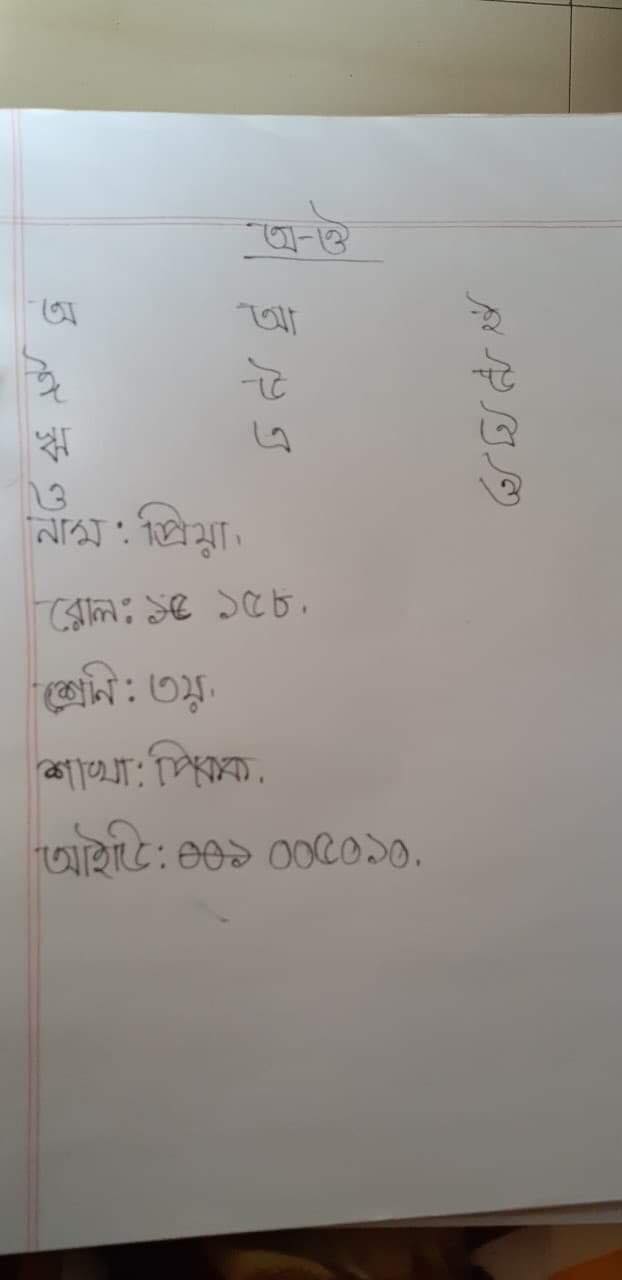 অ-ঔ
অ আ ই
ঈ উ ঊ
ঋ এ ঐ
ও ঔ
নাম : প্রিয়া.
রোল: ১৫৮.
শ্রেনি : ৩য়.
শাখা : পিকক.
আইডি : ০০৫০১০.